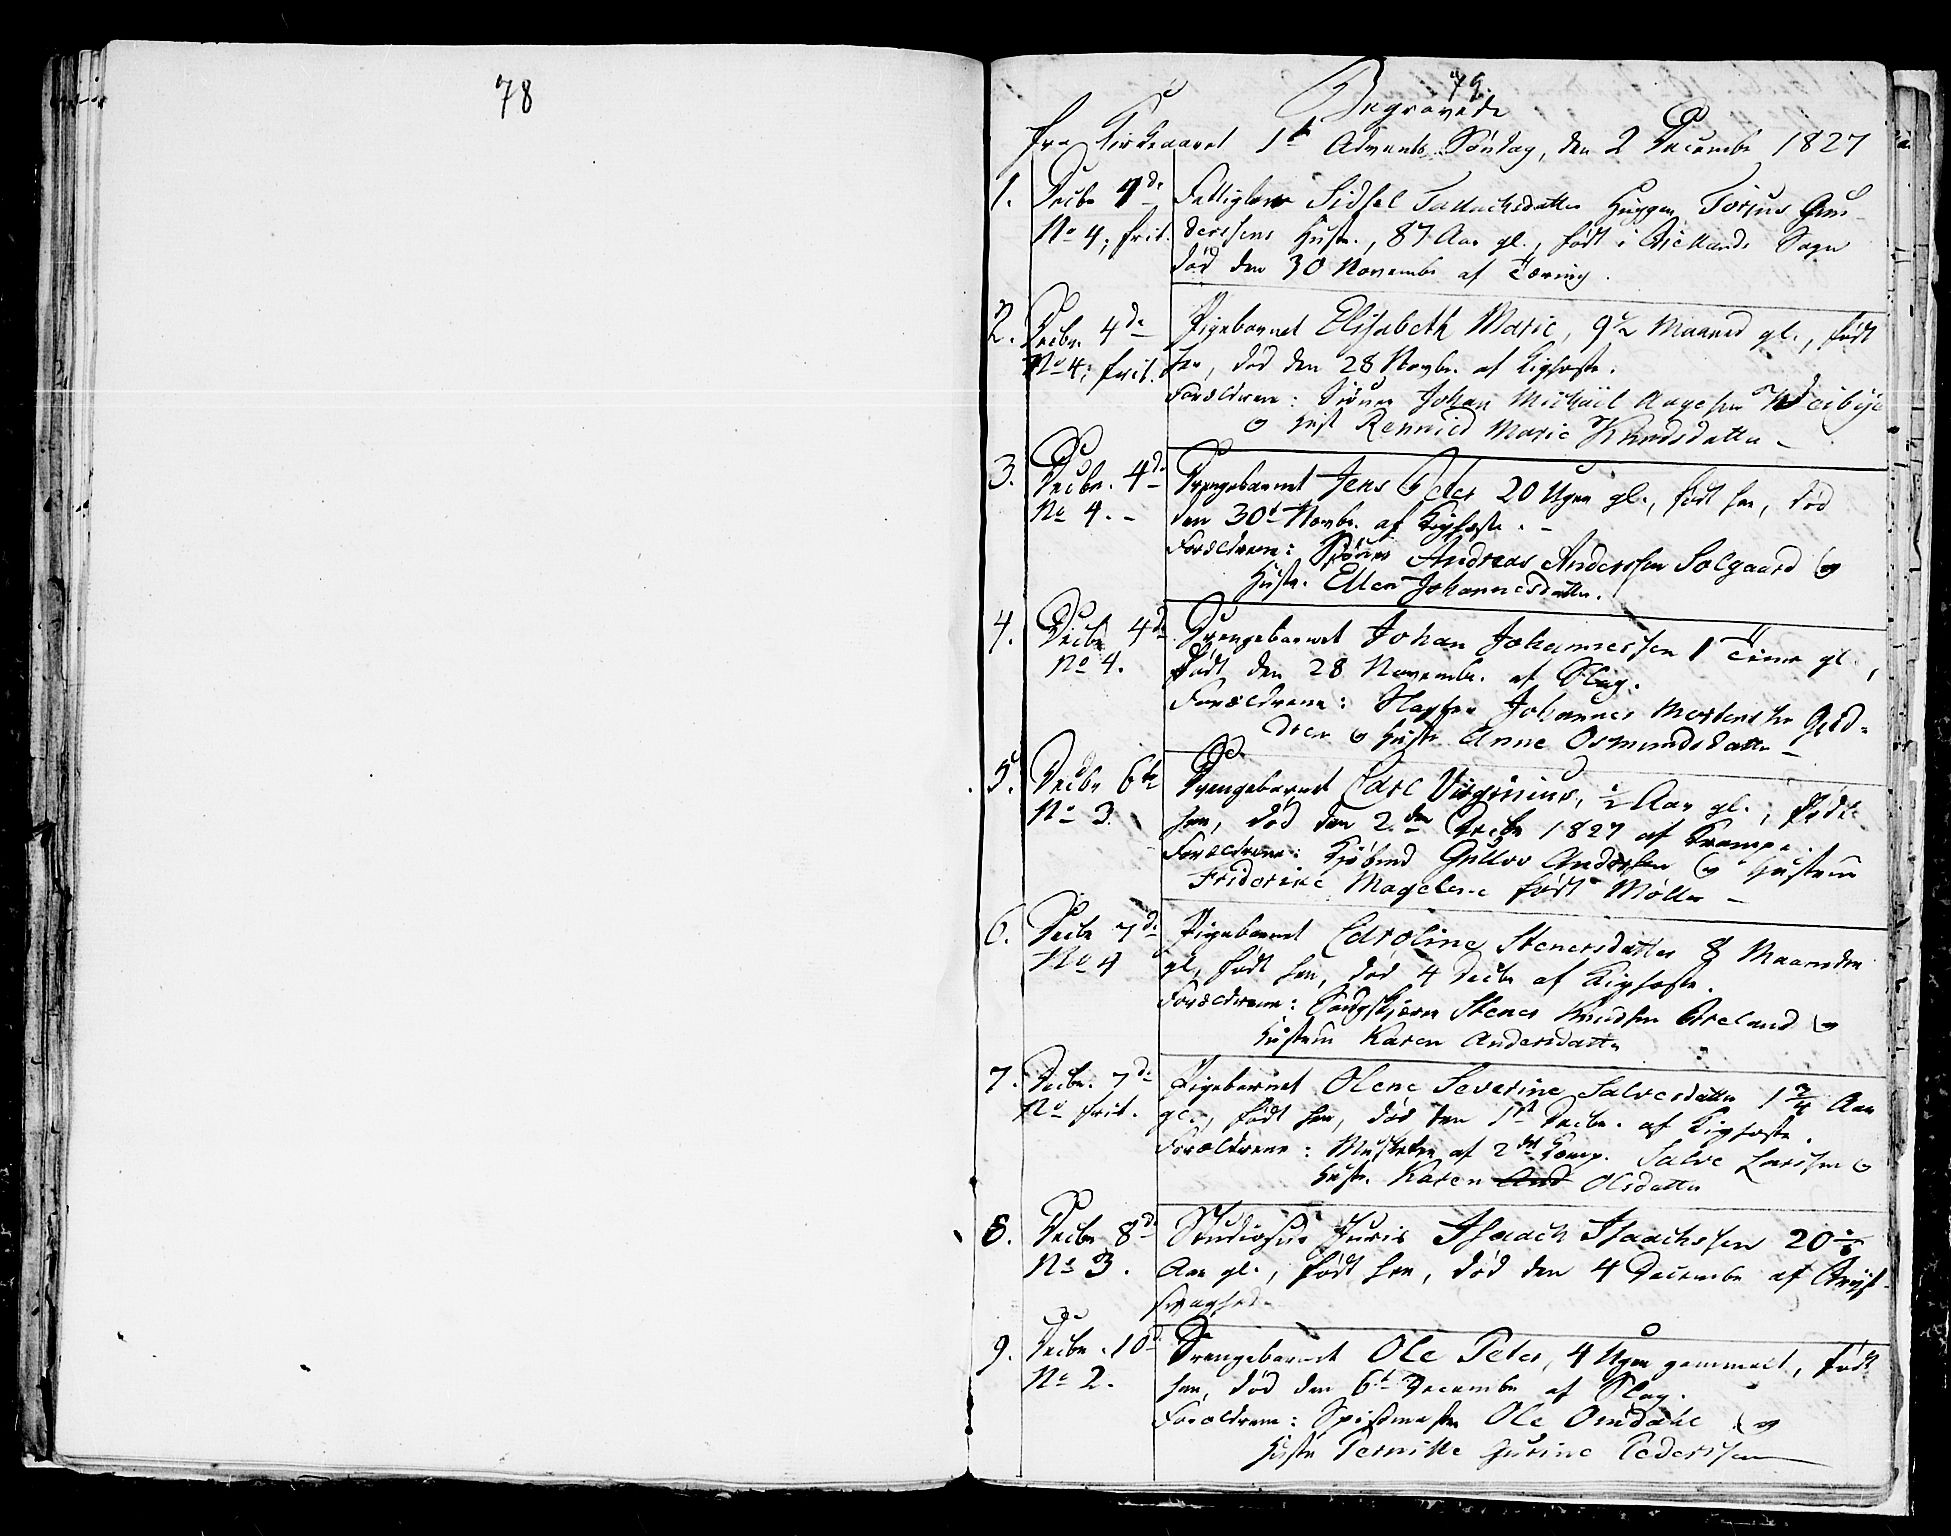 78
79.
Begravede
fra Kirkeaaret 1te Advents Søndag, den 2 December 1827
1. Decbr 4de Fattiglem Sidsel Tallachsdatter Torjus Gun-
No 4; frit. dersens Hustr., 87 Aar gl., født i Sogn
død den 30 Novembr af Tæring.
2. Decbr. 4de Pigebarnet Elisabeth Marie, 9½ Maaned gl., født
No 4; frit. her, død den 28 Novbr. af Kighoste.
Forældrene: Johan Michael Aagesen Weibye
og Hust Rennild Marie Knudsdatter
3. Decbr. 4de Drengebarnet Jens Peter 20 Uger gl., født her, død
No 4. - den 30t Novbr. af Kighoste. -
Forældrene: Andreas Anderssen Solgaard og
Hustr. Ellen Johannesdatter.
4. Decbr 4de Drengebarnet Johan Johannessen 1 Time gl.,
No 4. født den 28 Novembr. af Slag.
Forældrene: Johannes Mortensen
og Hustr Anne Osmundsdatter -
5. Decbr 6te Drengebarnet Carl Virginius, ½ Aar gl., født
No 3. her, død den 2den Decbr 1827 af Krampe.
Forældrene: Kjøbmd Gullov Andersen og Hustru
Friderike Magelene født Møller -
6. Decbr 7de Pigebarnet Caroline Stenersdatter 8 Maaneder
No 4 gl., født her, død 4 Decbr af Kighoste.
Forældrene: Stener Knudsen Areland og
Hustru Karen Andersdatter
7. Decbr. 7de Pigebarnet Olene Severine Salvesdatter 1¾ Aar
No frit. gl., født her, død den 1st Decbr. af Kighoste.
Forældrene: Musketer af 2det Comp. Salve Larssen og
Hustr. Karen And Olsdatter
8. Decbr 8de Studiosus Juris Isaach Isaachssen 20½
No 3. Aar gl., født her, død den 4 December af Bryst-
svaghed.
9. Decbr. 10de Drengebarnet Ole Peter, 4 Uger gammelt, født
No 2. her, død den 6te December af Slag.
Forældrene: Ole Omdahl og
Hustr Pernille Gurine Pederssen